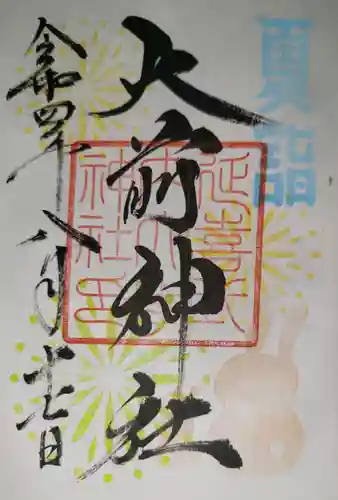 夏詣
大前神社
延喜式
内大前
神社印
令和四年八月十七日